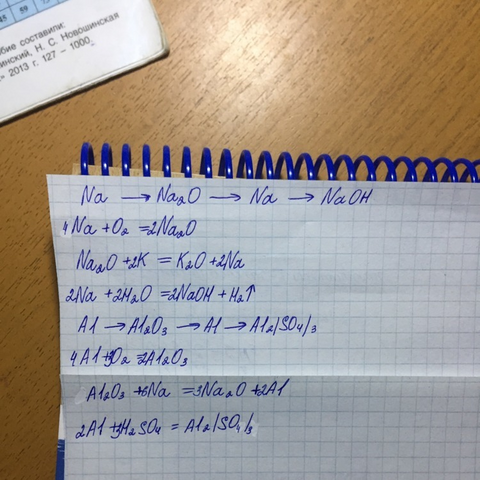 45 59
бие составили:
инский, Н. С. Новошинская
2013 г. 127 – 1000.
Na → Na₂O → Na → NaOH
4Na + O₂ = 2Na₂O
Na₂O + 2K = K₂O + 2Na
2Na + 2H₂O = 2NaOH + H₂↑
Al → Al₂O₃ → Al → Al₂(SO₄)₃
4Al + 3O₂ = 2Al₂O₃
Al₂O₃ + 6Na = 3Na₂O + 2Al
2Al + 3H₂SO₄ = Al₂(SO₄)₃